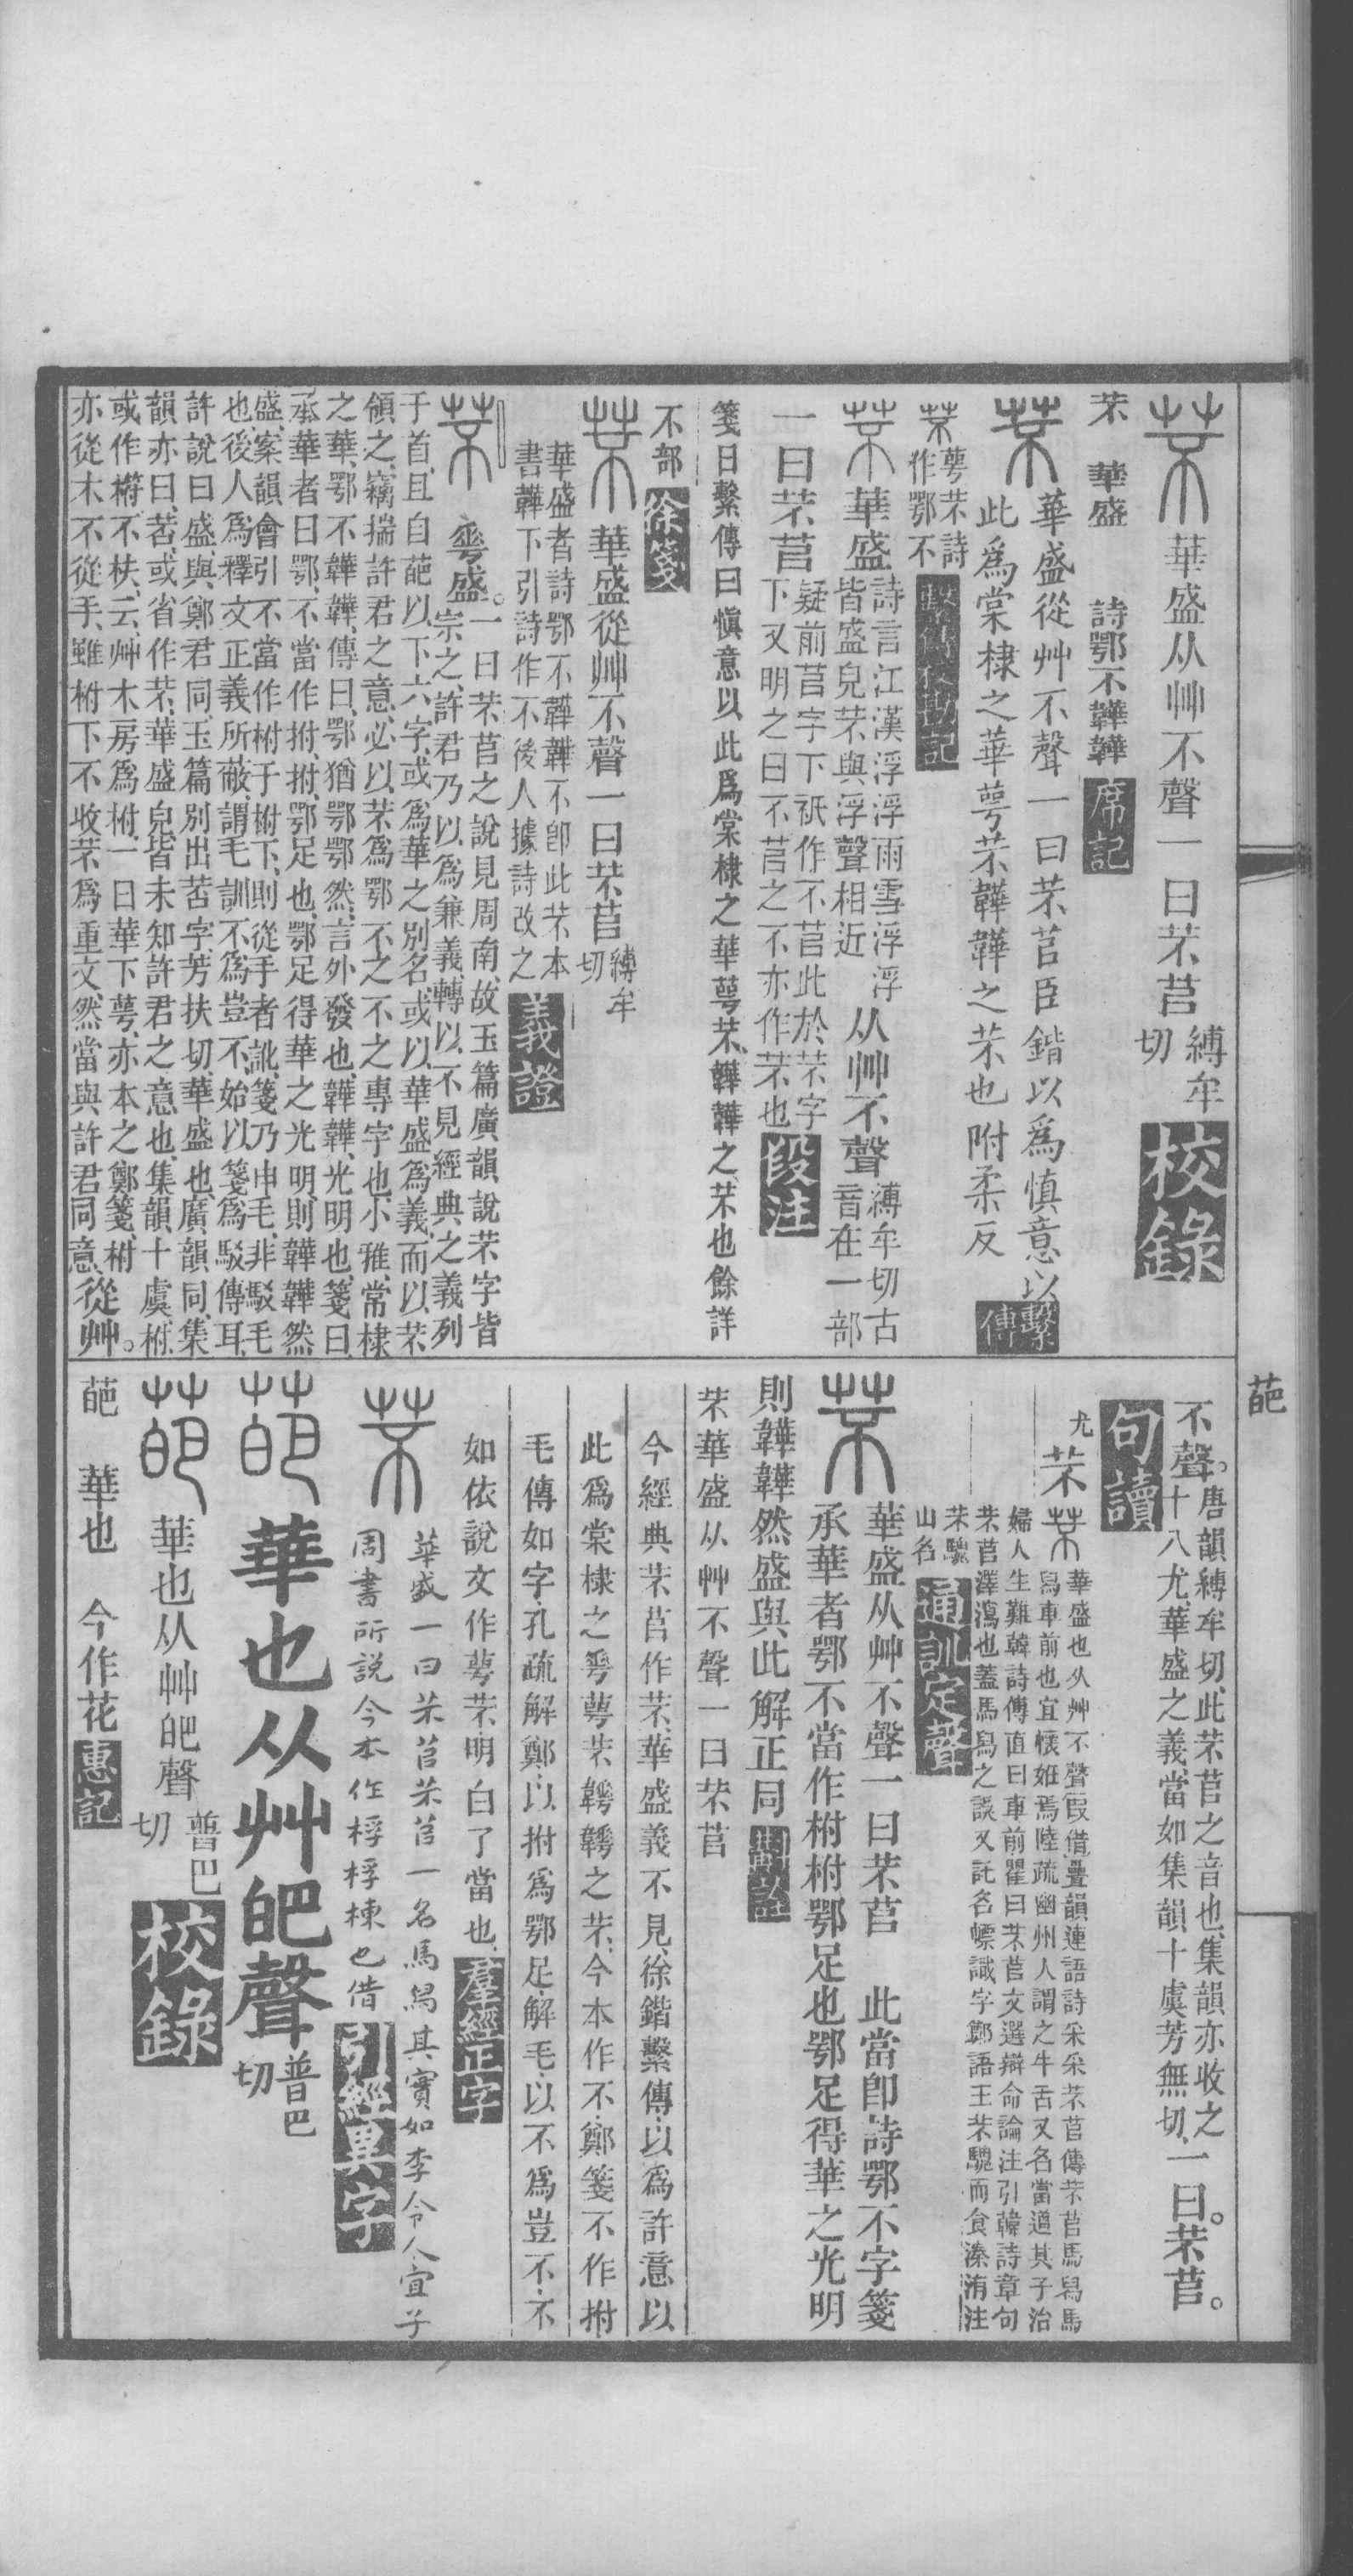 芣 華盛从艸不聲一曰芣苢 縛牟切 校錄
芣 華盛 詩鄂不韡韡 席記
芣 華盛從艸不聲一曰芣苢臣鍇以為慎意以
此為棠棣之華萼芣韡韡之芣也附柔反 繫傳
芣 萼芣詩
作鄂不 繫傳校勘記
芣 華盛 詩言江漢浮浮雨雪浮浮
皆盛皃芣與浮聲相近 从艸不聲 縛牟切古
音在一部
一曰芣苢 疑前苢字下祇作不苢此於芣字
下又明之曰不苢之不亦作芣也 段注
箋曰繫傳曰愼意以此爲棠棣之華萼芣韡韡之芣也餘詳
不部 徐箋
芣 華盛從艸不聲一曰芣苢 縛牟切
華盛者詩鄂不韡韡不卽此芣本
書韡下引詩作不後人據詩改之 義證
芣 蕚盛。一曰芣苢之說見周南故玉篇廣韻說芣字皆
宗之許君乃以爲兼義轉以不見經典之義列
于首且自葩以下六字或爲華之別名或以華盛爲義而以芣
領之竊揣許君之意必以芣爲鄂不之不之專字也小雅常棣
之華鄂不韡韡傳曰鄂猶鄂鄂然言外發也韡韡光明也箋曰
承華者曰鄂不當作拊拊鄂足也鄂足得華之光明則韡韡然
盛案韻會引不當作柎于柎下則從手者訛箋乃申毛非駁毛
也後人爲釋文正義所蔽謂毛訓不爲豈不始以箋爲駁傳耳
許說曰盛與鄭君同玉篇別出苤字芳扶切華盛也廣韻同集
韻亦曰苤或省作芣華盛皃皆未知許君之意也集韻十虞柎
或作樕不枎云艸木房爲柎一曰華下萼亦本之鄭箋柎
亦從木不從手雖柎下不收芣爲重文然當與許君同意從艸。
葩
不聲。唐韻縛牟切此芣苢之音也集韻亦收之
十八尤華盛之義當如集韻十虞芳無切 一曰。芣苢。
句讀
尤 芣 芣 華盛也从艸不聲叚借疊韻連語詩采采芣苢傳芣苢馬舄馬
舄車前也宜懷妊焉陸疏幽州人謂之牛舌又名當道其子治
婦人生難韓詩傳直曰車前瞿曰芣苢文選辯命論注引韓詩章句
芣苢澤瀉也蓋馬舄之誤又託名幖識字鄭語主芣騩而食溱洧注
芣騩
山名 通訓定聲
芣 華盛从艸不聲一曰芣苢 此當卽詩鄂不字箋
承華者鄂不當作柎柎鄂足也鄂足得華之光明
則韡韡然盛與此解正同 斠詮
芣華盛从艸不聲一曰芣苢
今經典芣苢作芣華盛義不見徐鍇繫傳以爲許意以
此爲棠棣之蕚萼芣韡韡之芣今本作不鄭箋不作拊
毛傳如字孔疏解鄭以拊爲鄂足解毛以不爲豈不不
如依說文作萼芣明白了當也 羣經正字
芣 華盛一曰芣苢芣苢一名馬舄其實如李令人宜子
周書所說今本作桴桴棟也借 引經異字
葩 華也从艸皅聲 普巴切
葩 華也从艸皅聲 普巴切 校錄
葩 華也 今作花 惠記